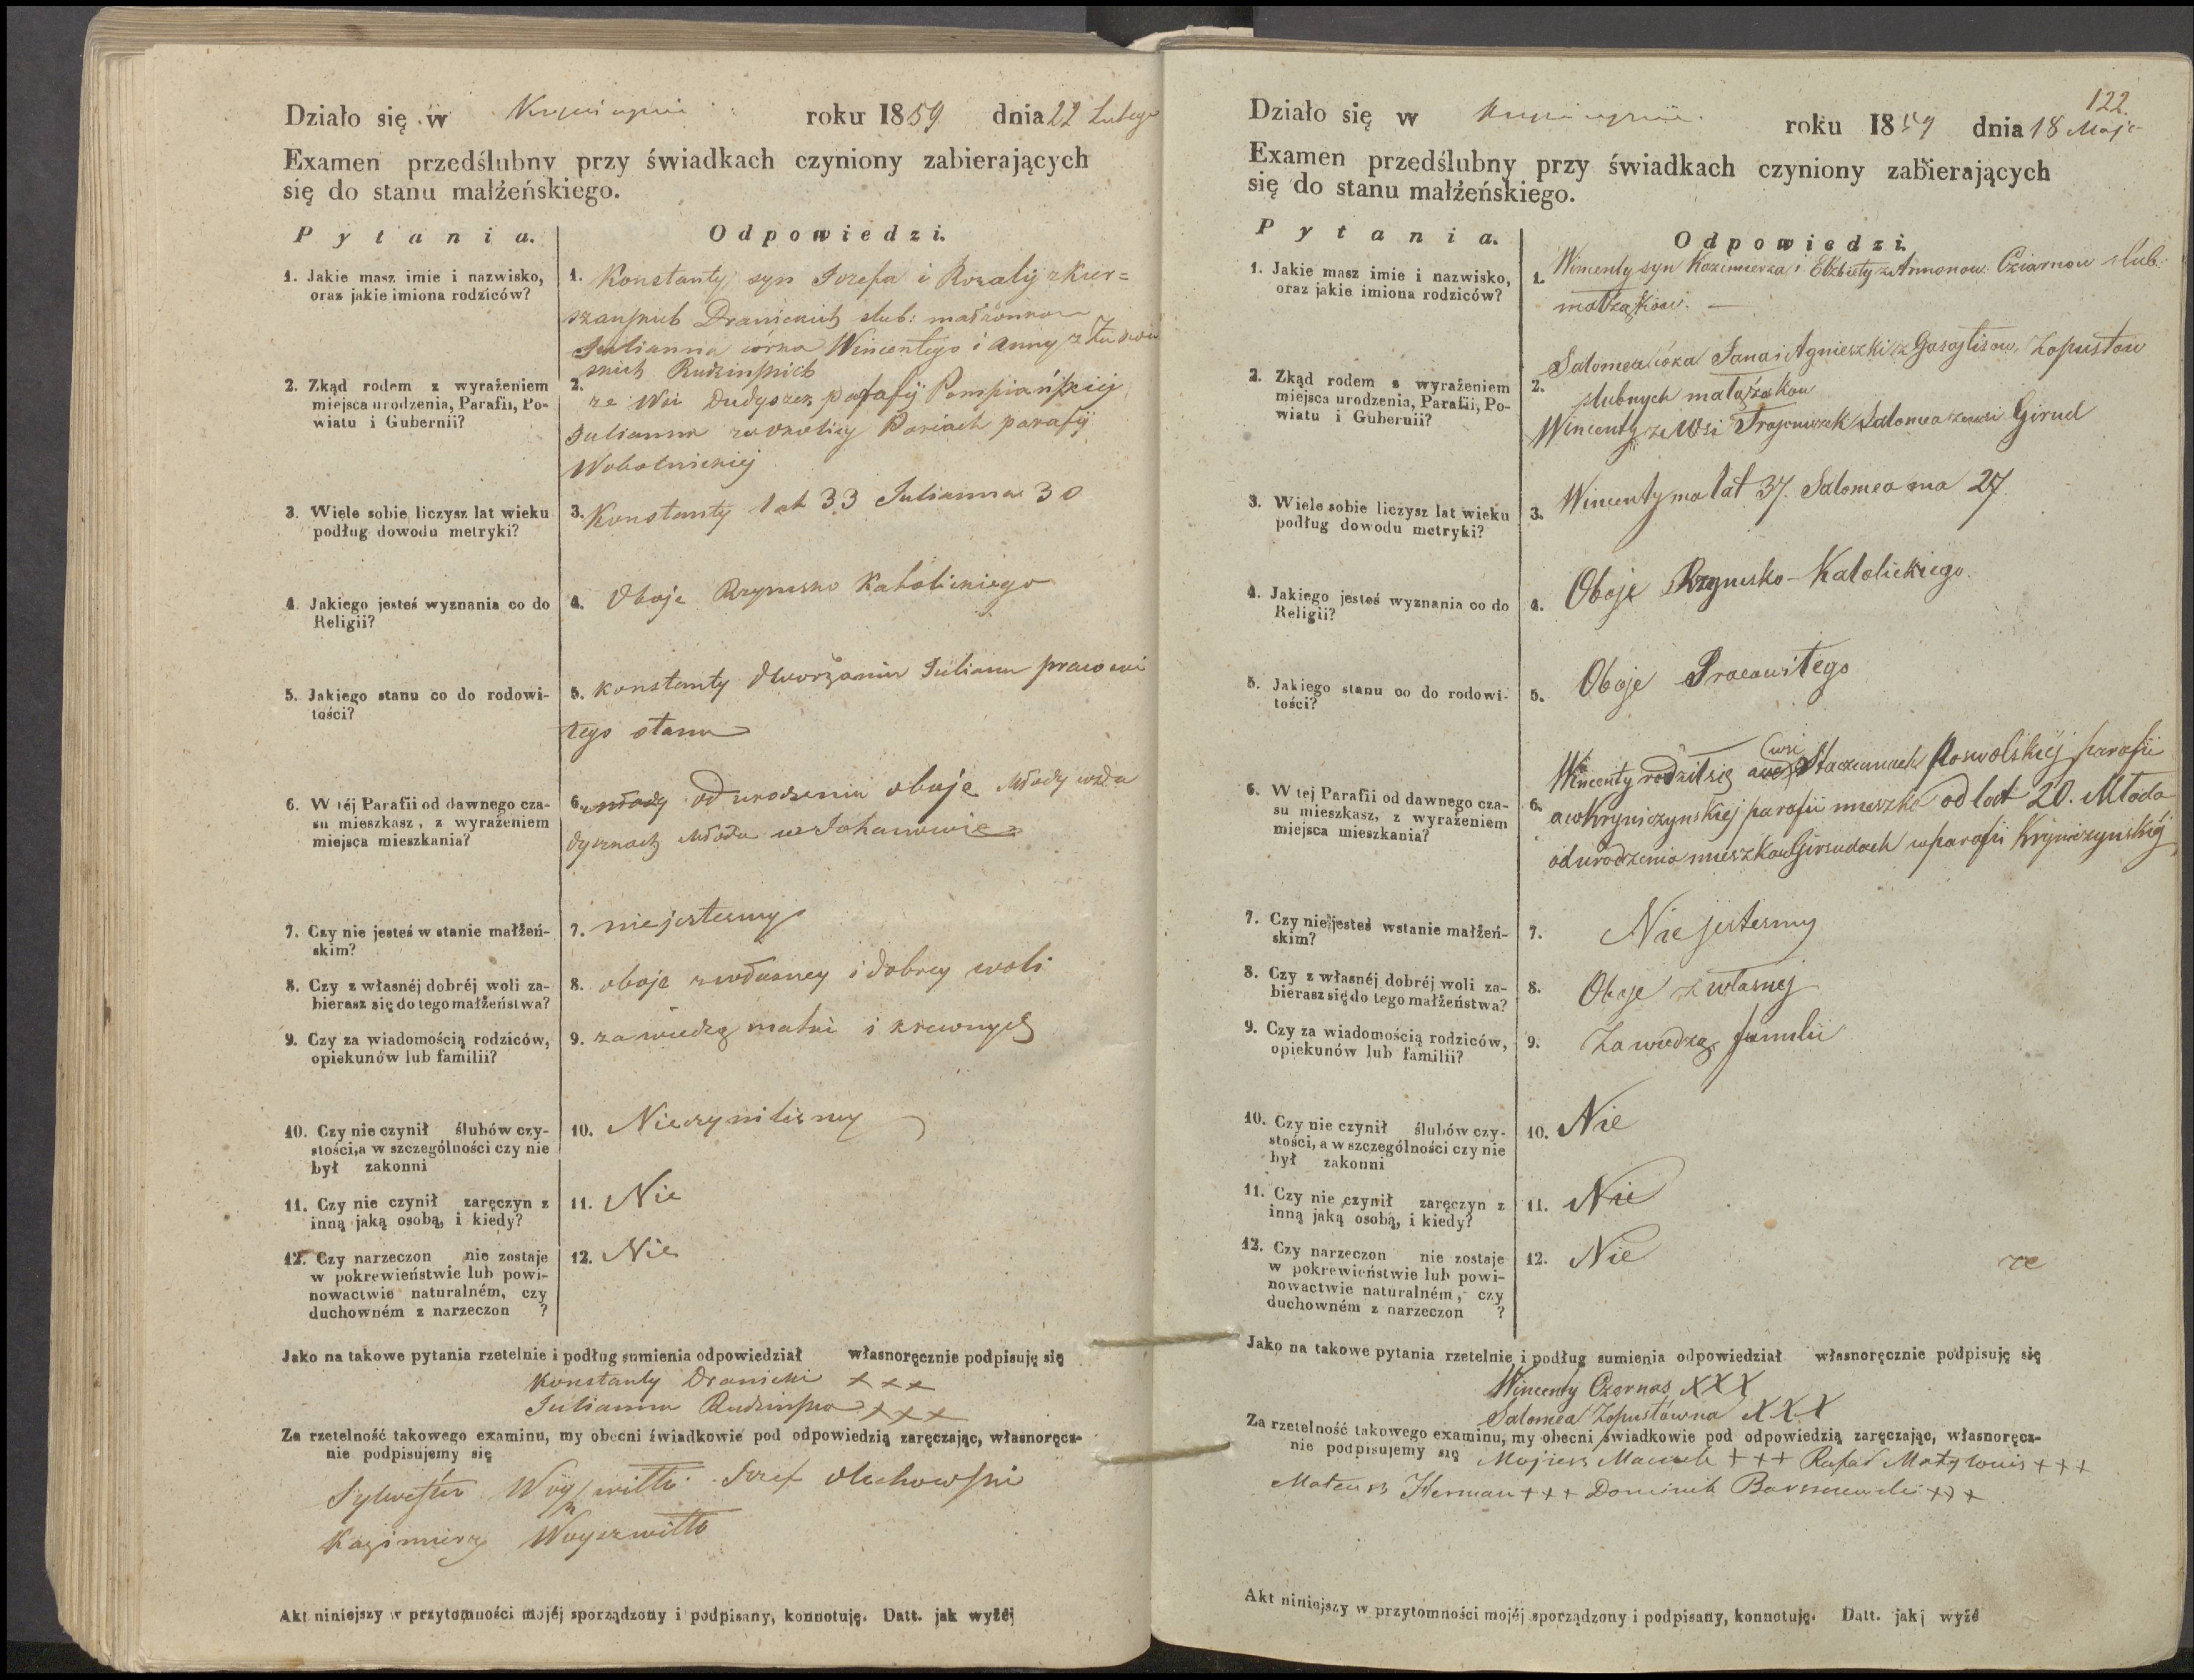 Działo się w roku 1859 dnia 22 Lutego
Examen przedślubny przy świadkach czyniony zabierających
się do stanu małżeńskiego.
Pytania. Odpowiedzi.
1. Jakie masz imie i nazwisko,
oraz jakie imiona rodziców?
1. Konstanty syn Jozefa i Rozalij
Dranickich slub:
Julianna córka Wincentego i Anny z
Rudzinskich
2. Zkąd rodem z wyrażeniem
miejsca urodzenia, Parafii, Po-
wiatu i Gubernii?
2. ze Wsi parafij Pompiańskiej
Julianna z okolicy Pariach parafij
Wobolnickiej
3. Wiele sobie liczysz lat wieku
podług dowodu metryki?
3. Konstanty lat 33 Julianna 30
4. Jakiego jesteś wyznania co do
Religii?
4. Oboje Rzymsko Katolickiego
5. Jakiego stanu co do rodowi-
tości?
5. Konstanty dworzanin Julianna pracowi
tego stanu
6. W téj Parafii od dawnego cza-
su mieszkasz, z wyrażeniem
miejsca mieszkania?
6. od urodzenia oboje Młody
Młoda w
7. Czy nie jesteś w stanie małżeń-
skim?
7. nie jestesmy
8. Czy z własnéj dobréj woli za-
bierasz się do tego małżeństwa?
8. oboje z własney i dobrey woli
9. Czy za wiadomością rodziców,
opiekunów lub familii?
9. za wiedzą matki i krewnych
10. Czy nie czynił ślubów czy-
stości, a w szczególności czy nie
był zakonni
10. Nie czynilismy
11. Czy nie czynił zaręczyn z
inną jaką osobą, i kiedy?
11. Nie
12. Czy narzeczon nie zostaje
w pokrewieństwie lub powi-
nowactwie naturalném, czy
duchowném z narzeczon ?
12. Nie
Jako na takowe pytania rzetelnie i podług sumienia odpowiedział własnoręcznie podpisuję się
Konstanty Dranicki +++
Julianna Rudzinska +++
Za rzetelność takowego examinu, my obecni świadkowie pod odpowiedzią zaręczając, własnoręcz-
nie podpisujemy się
Sylwester Jozef Olechowski
Kazimierz Woyszwiłło
Akt niniejszy w przytomności mojéj sporządzony i podpisany, konnotuję. Datt. jak wyżéj
122.
Działo się w roku 1859 dnia 18 Maja
Examen przedślubny przy świadkach czyniony zabierających
się do stanu małżeńskiego.
Pytania. Odpowiedzi.
1. Jakie masz imie i nazwisko,
oraz jakie imiona rodziców?
1. Wincenty syn Kazimierza i Elżbiety z slub:
małżąkow. —
Salomea córka Jana i Agnieszki z Zopustow
slubnych małążakow
2. Zkąd rodem z wyrażeniem
miejsca urodzenia, Parafii, Po-
wiatu i Gubernii?
2. Wincenty ze Wsi Salomea ze wsi Girud
3. Wiele sobie liczysz lat wieku
podług dowodu metryki?
3. Wincenty ma lat 37. Salomea ma 27
4. Jakiego jesteś wyznania co do
Religii?
4. Oboje Rzymsko-Katolickiego
5. Jakiego stanu co do rodowi-
tości?
5. Oboje Pracowitego
6. W tej Parafii od dawnego cza-
su mieszkasz, z wyrażeniem
miejsca mieszkania?
6. Wincenty rodził się wsi Poswolskiéj parafii
a w Kryniczynskiej parafii mieszka od lat 20. Młoda
od urodzenia mieszka w Girsudach w parafii Kryniczynskiéj
7. Czy nie jesteś wstanie małżeń-
skim?
7. Nie jestesmy
8. Czy z własnéj dobréj woli za-
bierasz się do tego małżeństwa?
8. Oboje z własnej
9. Czy za wiadomością rodziców,
opiekunów lub familii?
9. Za wiedzą familii
10. Czy nie czynił ślubów czy-
stości, a w szczególności czy nie
był zakonni
10. Nie
11. Czy nie czynił zaręczyn z
inną jaką osobą, i kiedy?
11. Nie
12. Czy narzeczon nie zostaje
w pokrewieństwie lub powi-
nowactwie naturalném, czy
duchowném z narzeczon ?
12. Nie
Jako na takowe pytania rzetelnie i podług sumienia odpowiedział własnoręcznie podpisuję się
Wincenty Czernas XXX
Salomea Zopustówna XXX
Za rzetelność takowego examinu, my obecni świadkowie pod odpowiedzią zaręczając, własnoręcz-
nie podpisujemy się +++ Rafał +++
Mateusz Herman +++ Dominik +++
Akt niniejszy w przytomności mojéj sporządzony i podpisany, konnotuję. Datt. jakj wyżé